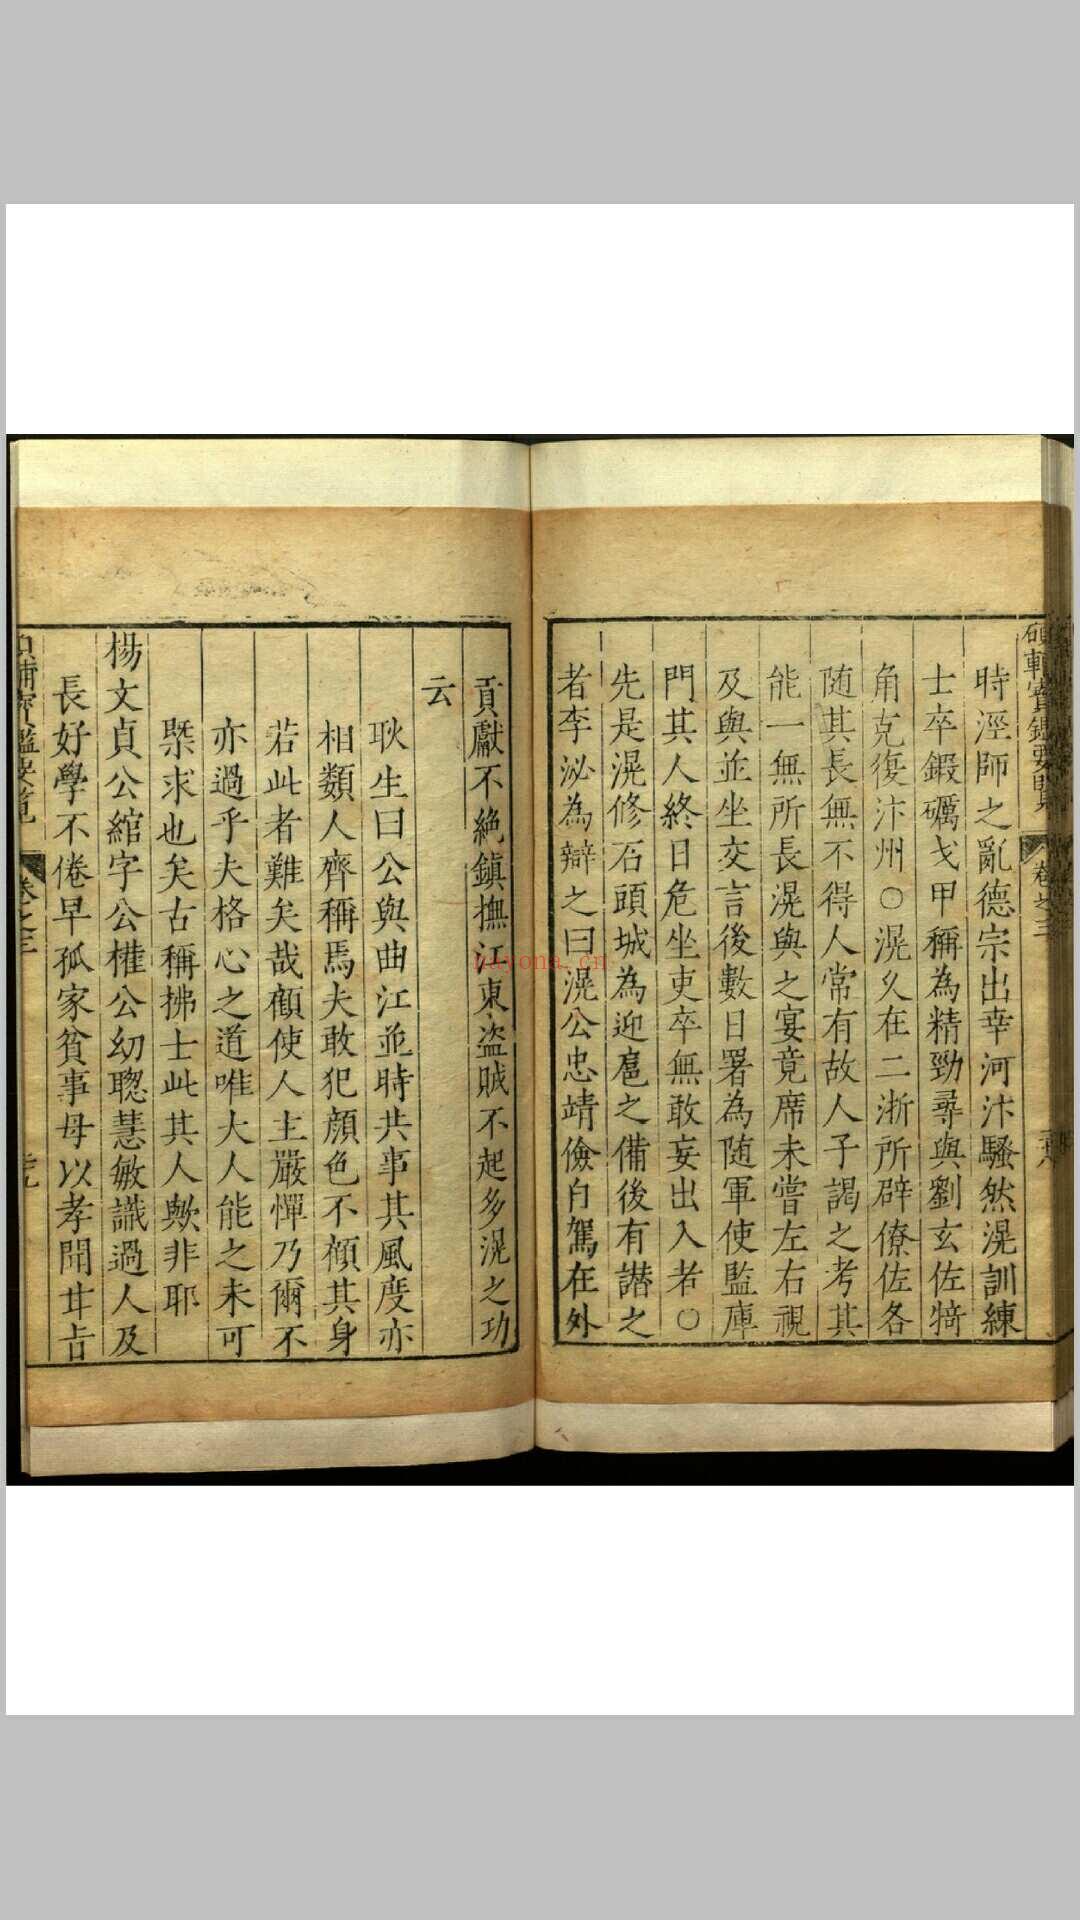 時涇師之亂德宗出幸河汴騷然滉訓練
士卒鍛礪戈甲稱為精勁尋與劉玄佐犄
角克復汴州○滉久在二浙所辟僚佐各
隨其長無不得人常有故人子謁之考其
能一無所長滉與之宴竟席未嘗左右視
及與並坐交言後數日署為随軍使監庫
門其人終日危坐吏卒無敢妄出入者○
先是滉修石頭城為迎扈之備後有譖之
者李泌為辯之曰滉公忠靖儉自駕在外
貢獻不絶鎮撫江東盗賊不起多滉之功
云
耿生曰公與曲江並時共事其風度亦
相類人齊稱焉夫敢犯顔色不顧其身
若此者難矣哉顧使人主嚴憚乃爾不
亦過乎夫格心之道唯大人能之未可
槩求也矣古稱拂士此其人歟非耶
楊文貞公綰字公權公幼聰慧敏識過人及
長好學不倦早孤家貧事母以孝聞甘旨
卷之三
hayona.cn